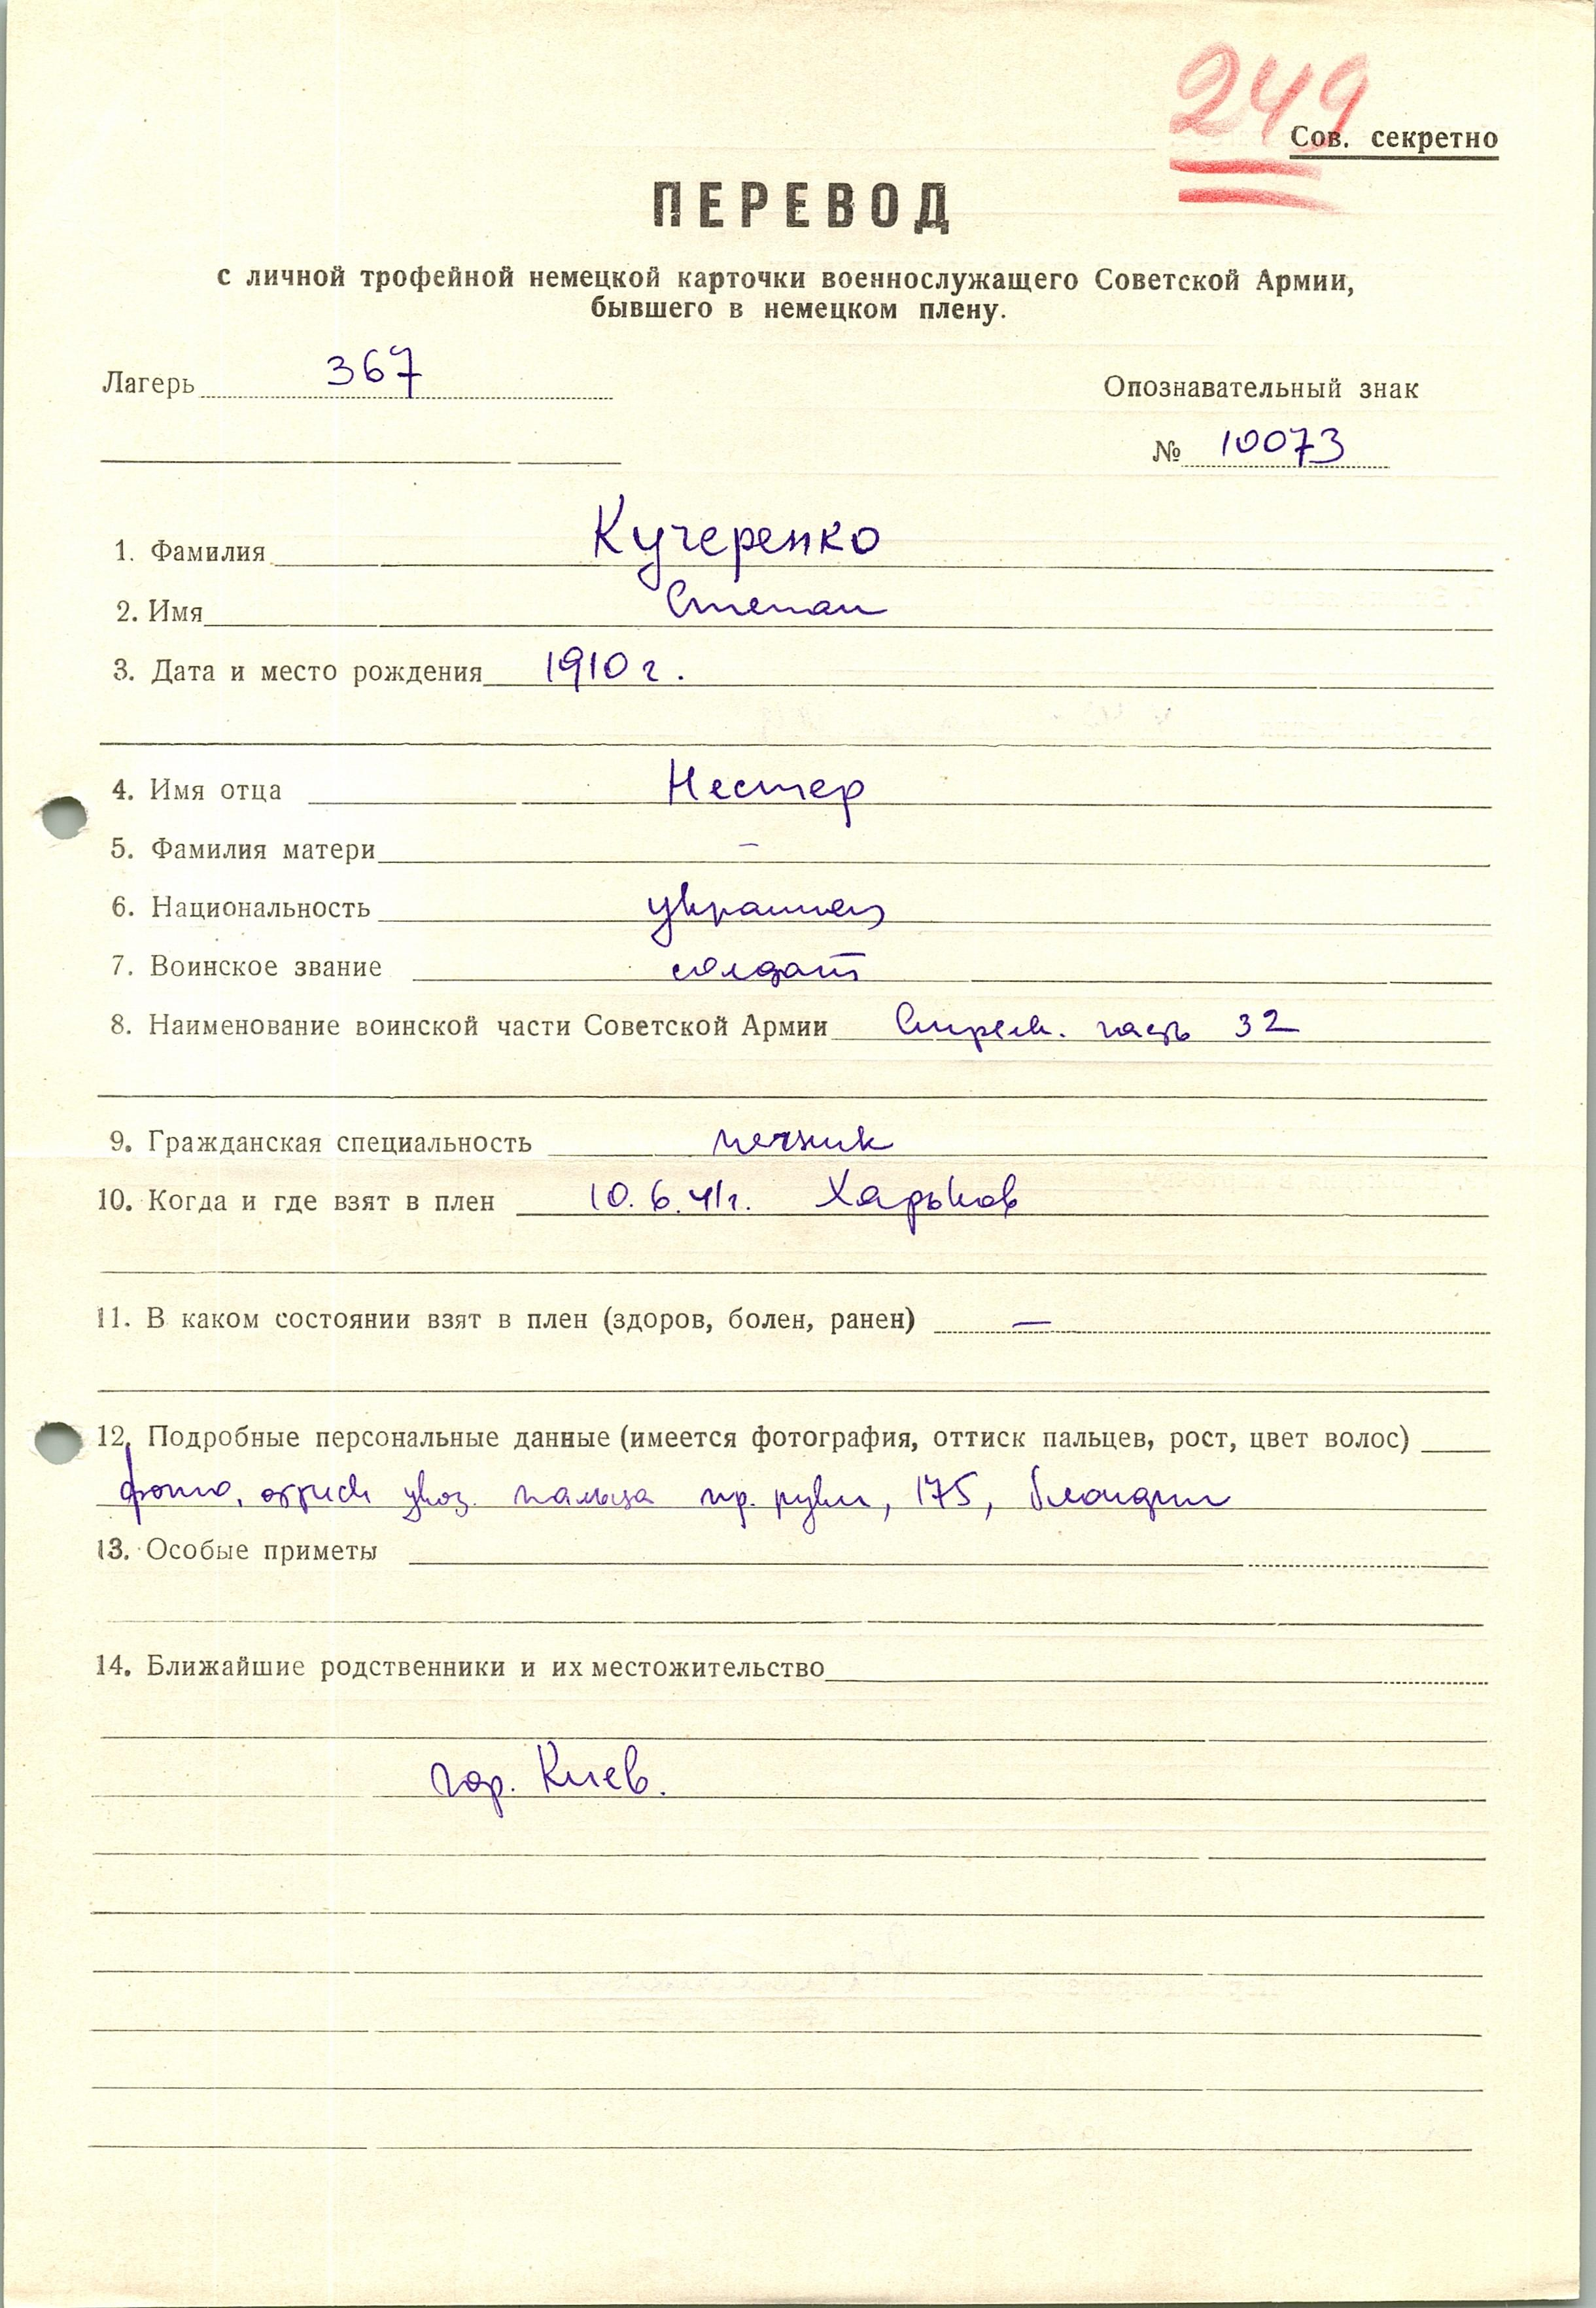 249
Сов. секретно
ПЕРЕВОД
с личной трофейной немецкой карточки военнослужащего Советской Армии,
бывшего в немецком плену.
Лагерь 367
Опознавательный знак
№ 10073
1. Фамилия Кучеренко
2. Имя Степан
3. Дата и место рождения 1910 г.
4. Имя отца Нестер
5. Фамилия матери –
6. Национальность украинец
7. Воинское звание солдат
8. Наименование воинской части Советской Армии Стрелк. часть 32
9. Гражданская специальность печник
10. Когда и где взят в плен 10.6.41г. Харьков
11. В каком состоянии взят в плен (здоров, болен, ранен) —
12. Подробные персональные данные (имеется фотография, оттиск пальцев, рост, цвет волос)
фото, оттиск указ. пальца пр. руки, 175, блондин
13. Особые приметы
14. Ближайшие родственники и их местожительство
гор. Киев.